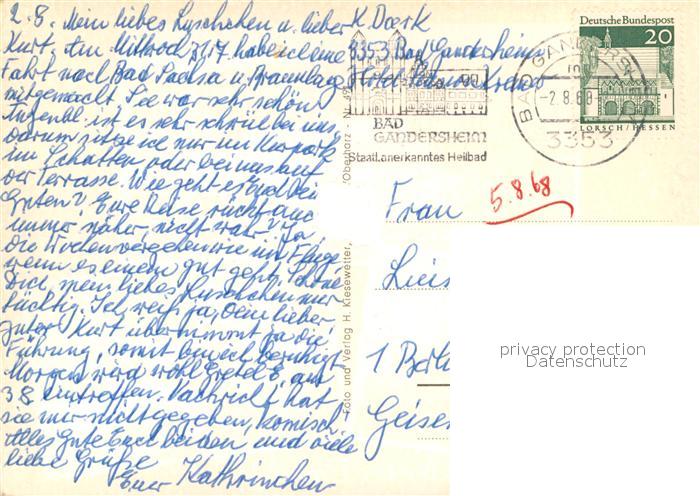 2.8. Mein liebes Luschchen u. lieber K. Doerk
Kurt, Am Mittwoch 31/7 habe ich eine 3353 Bad Gandersheim
Fahrt nach Bad Sachsa u. Braunlage Hotel
mitgemacht. Sie war sehr schön.
ist es sehr schwül bei uns,
Darum sitze ich nur im Kurpark
im Schatten oder bei uns auf
der Terrasse. Wie geht es
Guten? Eure Reise rückt auch
immer näher, nicht wahr? Ja
die Wochen vergehen wie im Fluge
wenn es einem gut geht. Schone
Dich, mein liebes Luschchen nur
tüchtig. Ich weiß ja, Dein lieber
guter Kurt übernimmt ja die
Führung, somit bin ich beruhigt.
Morgen wird wohl Gretel E. am
3.8 eintreffen. Nachricht hat
sie mir nicht gegeben, komisch
Alles Gute Euch beiden und viele
liebe Grüße
Eure Kathrinchen
BAD
GANDERSHEIM
Staatl. anerkanntes Heilbad
BAD GANDERSHEIM
-2.8.68
3353
Deutsche Bundespost
20
LORSCH / HESSEN
5.8.68
Frau
1 Berl
Foto und Verlag H. Kiesewetter,
/Oberharz - Nr.
privacy protection
Datenschutz